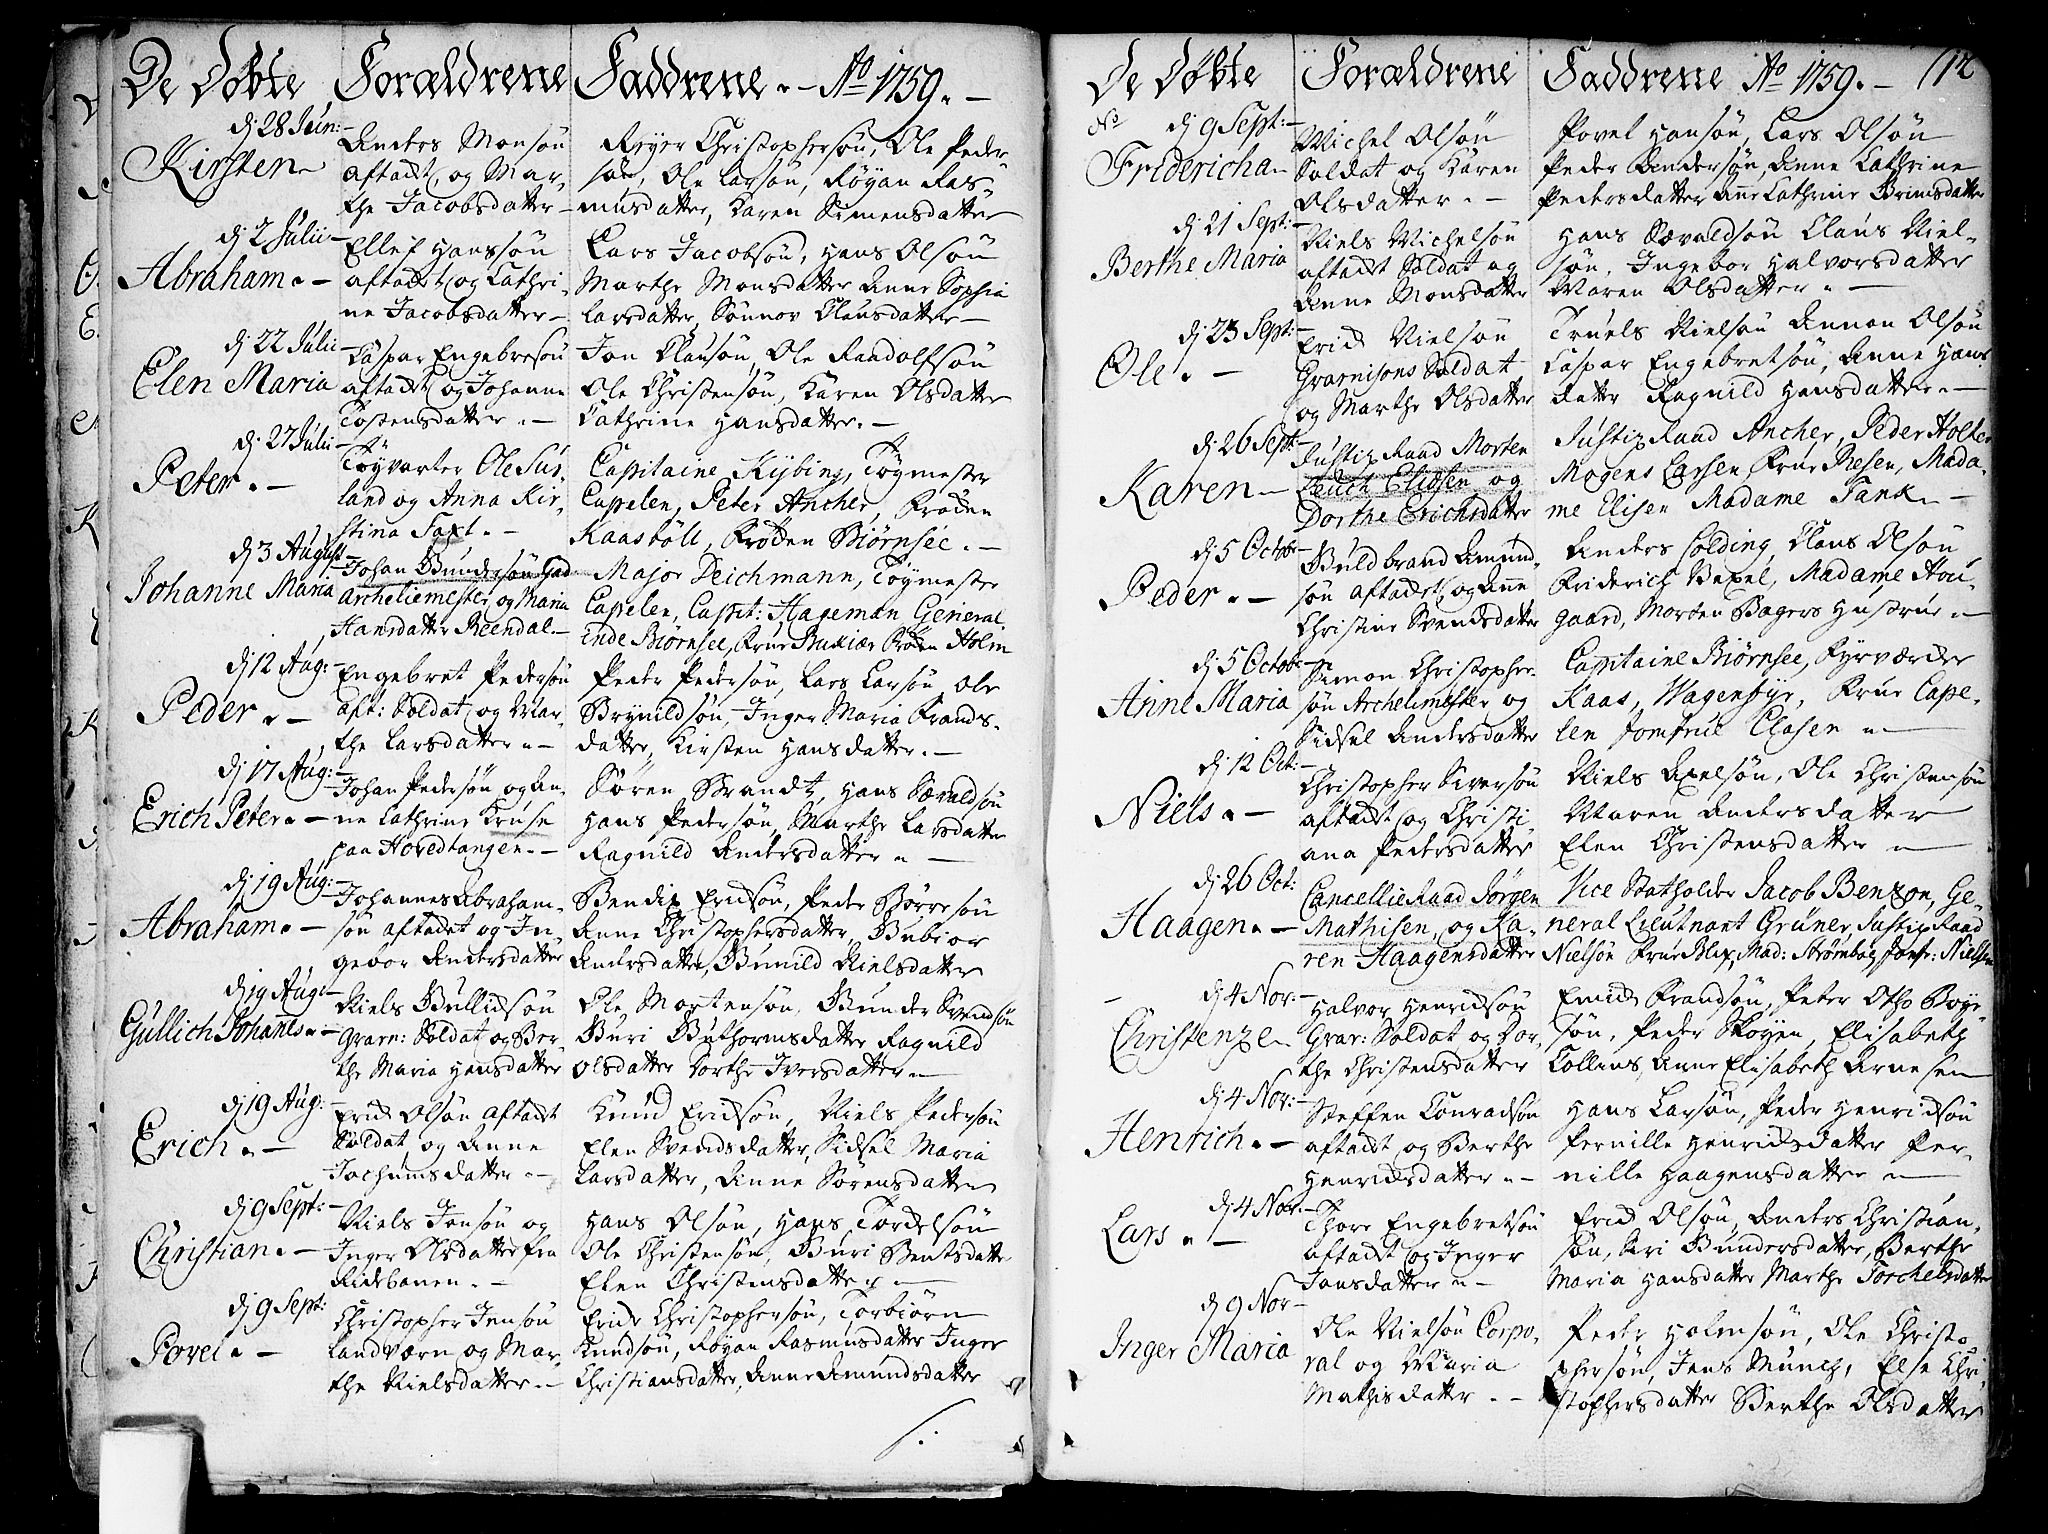 De Döbte Forældrene Faddrene. - Ao 1759. -
dj 28 Jun: -
Kirsten
Anders Monsøn
aftadt, og Mar-
the Jacobsdatter -
Reyer Christophersøn, Ole Peder
søn, Ole Larsøn, Røyan Ras-
musdatter, Karen Simensdatter
dj 2 Julii -
Abraham. -
Ellef Hanssøn
aftadt og Cathri-
ne Jacobsdatter -
Lars Jacobsøn, Hans Olsøn
Marthe Monsdatter Anne Sophia
Larsdatter, Sønnov Clausdatter -
dj 22 Julii -
Elen Maria
Caspar Engebresøn
aftadt og Johanne
Tostensdatter. -
Jon Clausøn, Ole Randolfsøn
Ole Christensøn, Karen Olsdatter
Cathrine Hansdatter. -
dj 27 Julii -
Peter. -
Töyvarter Ole Sus-
land og Anna Kir-
stina Faxt. -
Capitaine Kijbing, Töymester
Capelen, Peter Ancher, Frøden
Kaasböll, Frøden Biørnsee. -
dj 3 August -
Johanne Maria
Johan Gundersøn Gad
Archeliemester, og Maria
Hansdatter Reendal. -
Major Deichmann, Töymester
Capelen, Capit: Hageman General
inde Biørnsee, Frue Buxiær Frøden Holm
dj 12 Aug: -
Peder. -
Engebret Pedersøn
aft: Soldat og Mar-
the Larsdatter. -
Peder Pedersøn, Lars Larsøn, Ole
Brynildsøn, Inger Maria Frands-
datter, Kirsten Hansdatter. -
dj 17 Aug: -
Erich Peter. -
Johan Pedersøn og An-
ne Cathrine Kruse
paa Hovedtangen. -
Søren Brandt, Hans Sævaldsøn
Hans Pedersøn, Marthe Larsdatter
Ragnild Andersdatter. -
dj 19 Aug: -
Abraham. -
Johannes Abraham-
søn aftadet og In-
gebor Andersdatter
Bendix Ericksøn, Peder Børresøn
Anne Christophersdatter, Gubior
Andersdatter, Gunild Nielsdatter
dj 19 Aug: -
Gullich Johanes. -
Niels Gullicksøn
Grarn: Soldat og Ber-
the Maria Hansdatter
Ole Mortensøn, Gunder Svendsøn
Guri Guthormsdatter Ragnild
Olsdatter Dorthe Iversdatter. -
dj 19 Aug: -
Erich. -
Erick Olsøn aftadt
Soldat, og Anne
Jochumsdatter. -
Knud Ericksøn, Niels Pedersøn
Elen Svendsdatter, Sidsel Maria
Larsdatter, Anne Sørensdatter
dj 9 Sept: -
Christian. -
Niels Jonsøn og
Inger Olsdatter fra
Ridebanen. -
Hans Olsøn, Hans Tordelsøn
Ole Christensøn, Guri Bentsdatter
Elen Christensdatter -
dj 9 Sept:
Povel. -
Christopher Jensøn
Landværn og Mar-
the Nielsdatter. -
Erick Christophersøn, Torbiørn
Knudsøn, Røyan Rasmusdatter Inger
Christiansdatter, Anne Amundsdatter
De Döbte Forældrene Faddrene Ao 1759. - 12
No
dj 9 Sept: -
Fridericha -
Michel Olsøn
Soldat og Karen
Olsdatter. -
Povel Hansøn, Lars Olsøn
Peder Andersøn, Anne Cathrine
Pedersdatter Anne Cathrine Brimsdatter
dj 21 Sept: -
Berthe Maria
Niels Michelsøn
aftadt Soldat og
Anne Monsdatter
Hans Sævaldsøn Claus Niel-
søn, Ingebor Halvorsdatter
Maren Olsdatter. -
dj 23 Sept: -
Ole. -
Erick Nielsøn
Grarnisons Soldat
og Marthe Olsdatter
Truels Nielsøn Annon Olsøn
Caspar Engebretsøn, Anne Hans
datter Ragnild Hansdatter. -
dj 26 Sept: -
Karen -
Justiz Raad Morten
Leuch Elidsen og
Dorthe Erichsdatter
Justiz Raad Ancher, Peder Holter
Mogens Larsen Frue Resen, Mada-
me Elisen Madame Tank. -
dj 5 Octobr -
Peder. -
Guldbrand Amund-
søn aftadet og Anne
Christine Svendsdatter
Anders Colding, Claus Olsøn
Friderich Vexel, Madame Hou-
gaard, Morten Bagers Hustrue. -
dj 5 Octobr -
Anne Maria
Simon Christopher-
søn Archelimester og
Sidsel Andersdatter
Capitaine Biørnsee, Fyrværder
Kaas, Wagenbyr, Frue Cape-
len Jomfrue Clasen. -
dj 12 Oct: -
Niels. -
Christopher Siversøn
aftadt og Christi-
ana Pedersdatter
Niels Axelsøn, Ole Christensøn
Maren Andersdatter
Elen Christensdatter -
dj 26 Oct:
Haagen. -
Cancellie Raad Jörgen
Mathisen, og Ka-
ren Haagensdatter
Vice Statholder Jacob Benzon, Ge-
neral Lieutnant Grüner, Justiz Raad
Nielsøn Frue Blix, Mad: Strømboe, Jomfr: Nielsen
dj 4 Nov: -
Christenze -
Halvor Henricksøn
Grar: Soldat og Dor-
the Christensdatter
Emick Frandsøn, Peter Otho Boye-
søn, Peder Skoyen, Elisabeth
Collins, Anne Elisabeth Arnesen
dj 4 Nov: -
Henrich. -
Steffen Conradsøn
aftadt og Berthe
Henricksdatter. -
Hans Larsøn, Peder Henricksøn
Pernille Henricksdatter Per-
nille Haagensdatter. -
dj 4 Nov. -
Lars. -
Thore Engebretsøn
aftadt og Inger
Jonsdatter. -
Erick Olsøn, Anders Christian-
søn, Siri Gundersdatter, Berthe
Maria Hansdatter Marthe Torchelsdatter
dj 9 Nov -
Inger Maria
Ole Nielsøn Corpo-
ral og Maria
Mathisdatter. -
Peder Holmsøn, Ole Christo-
phersøn, Jens Munch, Else Chri-
stophersdatter Berthe Olsdatter